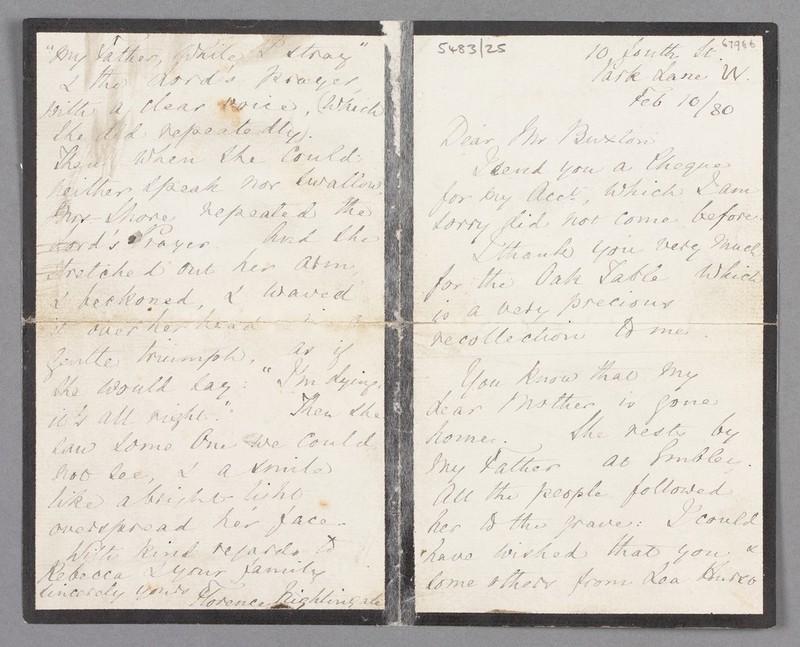 5483/25
67966
10 South St.
Park Lane W.
Feb 10/80
Dear Mr Buxton
I send you a Cheque
for my Acct, which I am
sorry did not come before.
I thank you very much
for the Oak Table which
is a very precious
recollection to me.
You know that my
dear Mother is gone
home. She rests by
my Father at Embley.
All the people followed
her to the grave: I could
have wished that you &
some others from Lea Hurst
"My Father, while I stray"
& the Lord's Prayer,
with a clear voice, (which
she did repeatedly).
Then when she could
neither speak nor swallow
Mrs Shore repeated the
Lord's Prayer. And she
stretched out her arm,
& beckoned, & waved
it over her head in a
gentle triumph, as if
she would say: "I'm dying:
it's all right." Then she
saw some One we could
not see, & a smile
like a bright light
overspread her face.
With kind regards to
Rebecca & your family
sincerely yours Florence Nightingale